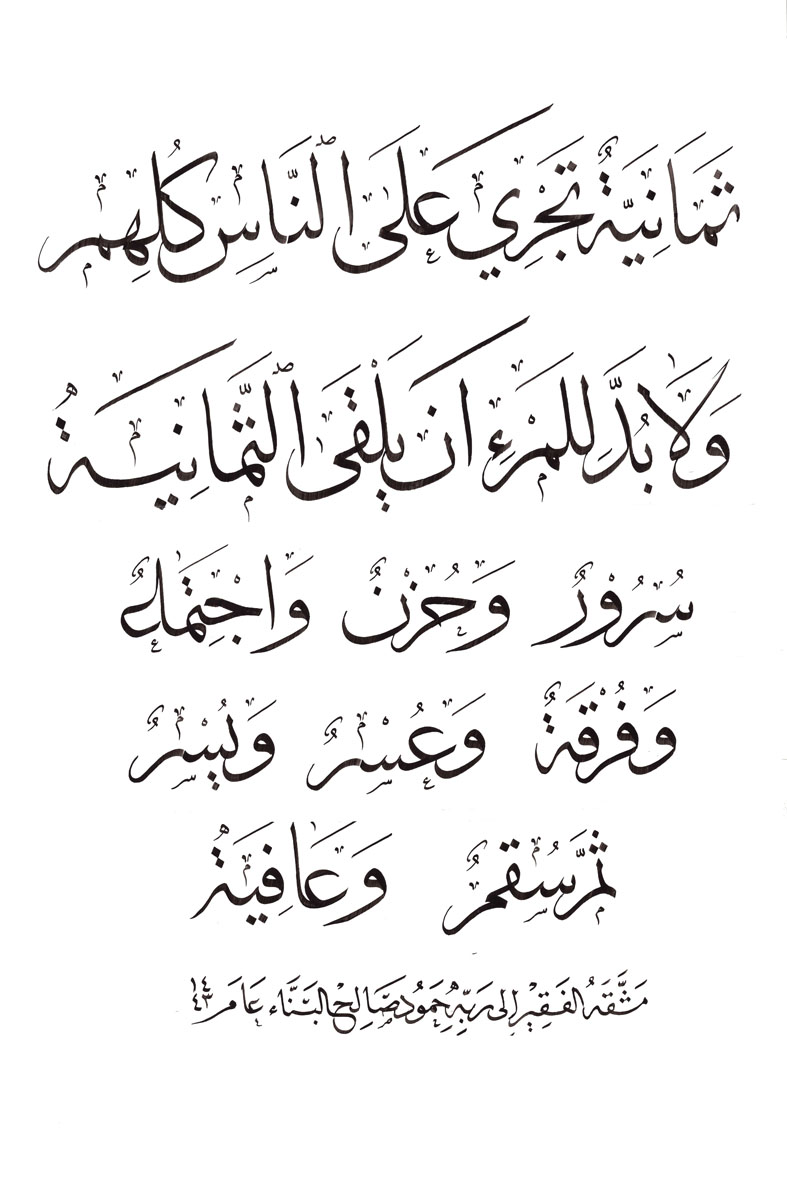 ثَمَانِيَةٌ تَجْرِي عَلَى ٱلنَّاسِ كُلِّهِمِ
وَلَا بُدَّ لِلمَرْءِ ان يَلْقَى ٱلثَّمَانِيَةُ
سُرُوْرٌ وَحُزْنٌ وَاجْتِمَاعٌ
وَفُرْقَةٌ وَعُسْرٌ وَيُسْرٌ
ثُمَّ سُقمٌ وَعَافِيَةٌ
مَشَّقَهُ الفَقِيْر إلى رَبِّهِ حَمُود صَالِح البَنَّاء عَامَ ١٤٤٣